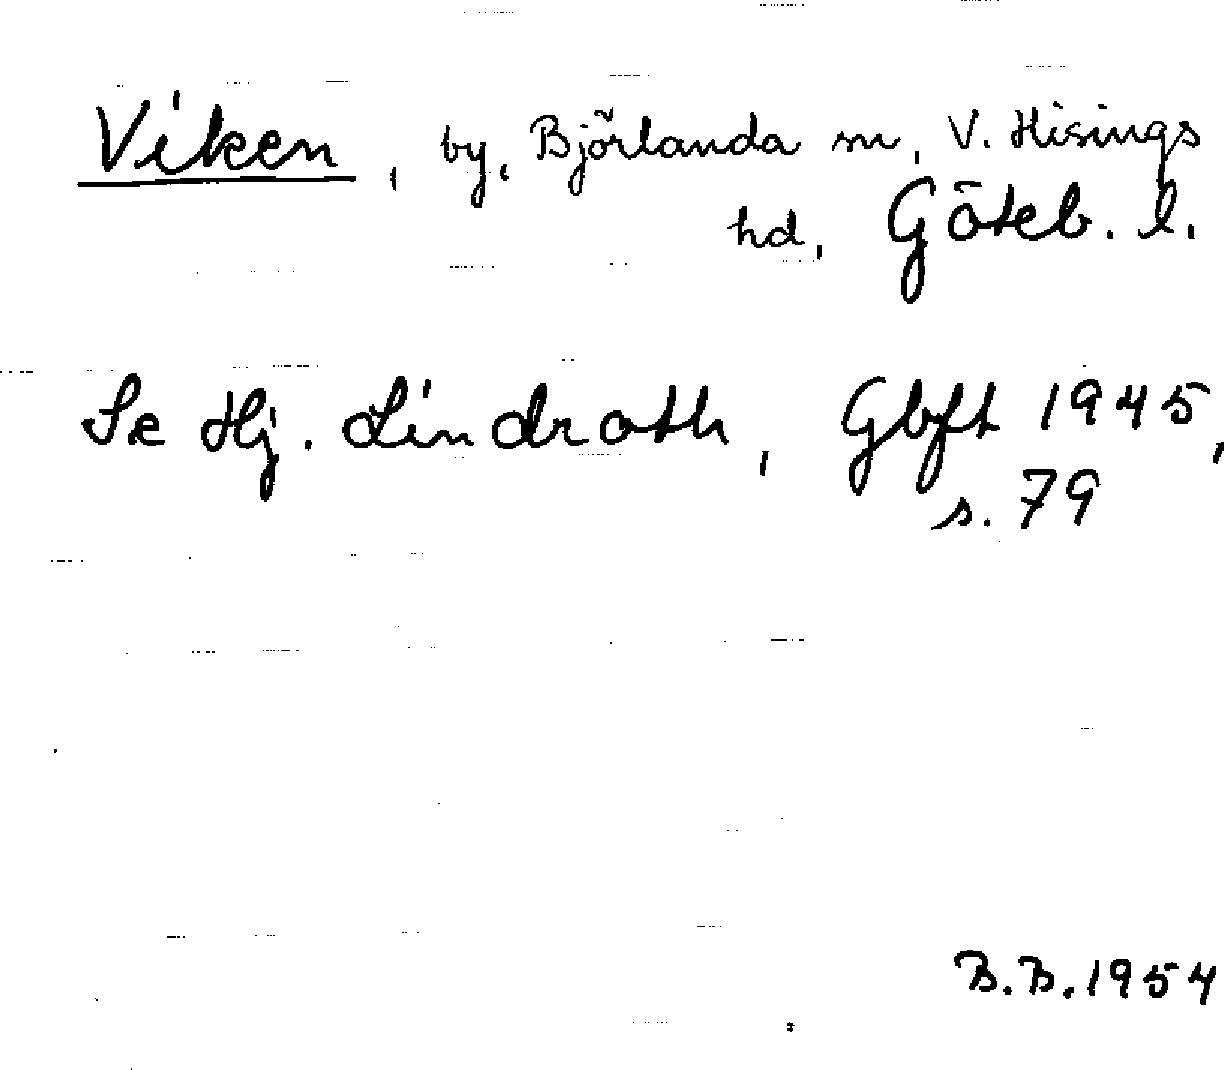 Viken, by, Björlanda sn, V. Hisings
hd, Göteb. l.
Se Hj. Lindroth, Gbft 1945,
s. 79
B.B. 1954